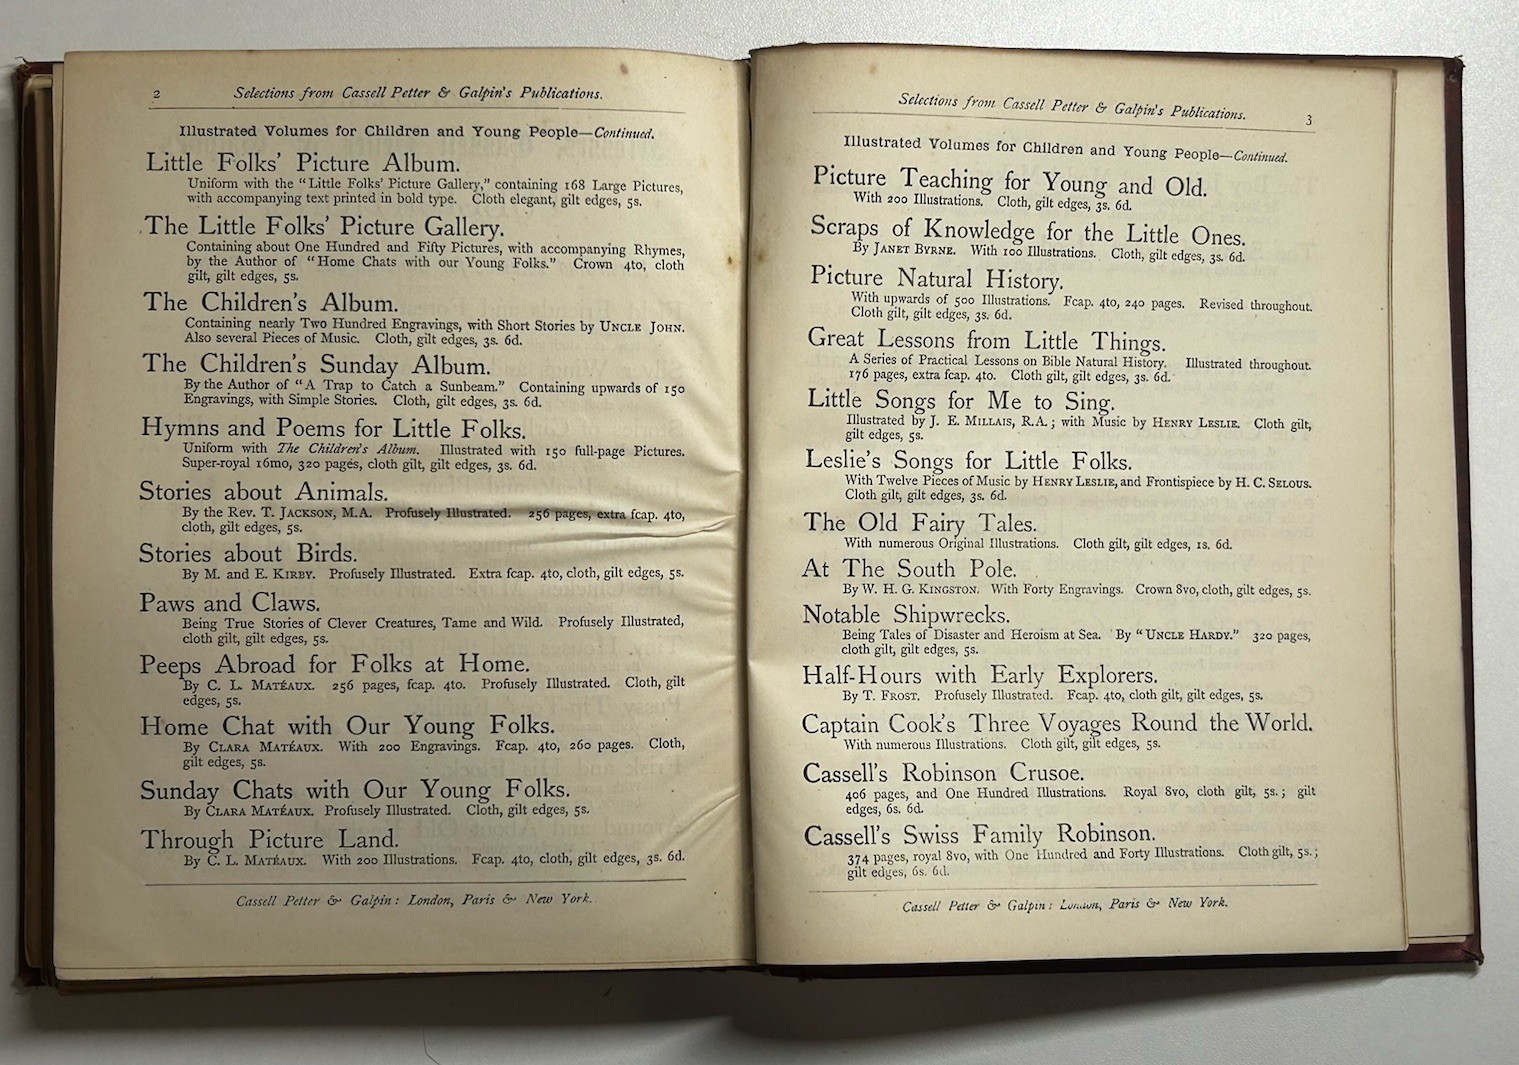 2 Selections from Cassell Petter & Galpin's Publications.
Illustrated Volumes for Children and Young People—Continued.
Little Folks' Picture Album.
Uniform with the "Little Folks' Picture Gallery," containing 168 Large Pictures,
with accompanying text printed in bold type. Cloth elegant, gilt edges, 5s.
The Little Folks' Picture Gallery.
Containing about One Hundred and Fifty Pictures, with accompanying Rhymes,
by the Author of "Home Chats with our Young Folks." Crown 4to, cloth
gilt, gilt edges, 5s.
The Children's Album.
Containing nearly Two Hundred Engravings, with Short Stories by UNCLE JOHN.
Also several Pieces of Music. Cloth, gilt edges, 3s. 6d.
The Children's Sunday Album.
By the Author of "A Trap to Catch a Sunbeam." Containing upwards of 150
Engravings, with Simple Stories. Cloth, gilt edges, 3s. 6d.
Hymns and Poems for Little Folks.
Uniform with The Children's Album. Illustrated with 150 full-page Pictures.
Super-royal 16mo, 320 pages, cloth gilt, gilt edges, 3s. 6d.
Stories about Animals.
By the Rev. T. JACKSON, M.A. Profusely Illustrated. 256 pages, extra fcap. 4to,
cloth, gilt edges, 5s.
Stories about Birds.
By M. and E. KIRBY. Profusely Illustrated. Extra fcap. 4to, cloth, gilt edges, 5s.
Paws and Claws.
Being True Stories of Clever Creatures, Tame and Wild. Profusely Illustrated,
cloth gilt, gilt edges, 5s.
Peeps Abroad for Folks at Home.
By C. L. MATÉAUX. 256 pages, fcap. 4to. Profusely Illustrated. Cloth, gilt
edges, 5s.
Home Chat with Our Young Folks.
By CLARA MATÉAUX. With 200 Engravings. Fcap. 4to, 260 pages. Cloth,
gilt edges, 5s.
Sunday Chats with Our Young Folks.
By CLARA MATÉAUX. Profusely Illustrated. Cloth, gilt edges, 5s.
Through Picture Land.
By C. L. MATÉAUX. With 200 Illustrations. Fcap. 4to, cloth, gilt edges, 3s. 6d.
Cassell Petter & Galpin: London, Paris & New York.
Selections from Cassell Petter & Galpin's Publications. 3
Illustrated Volumes for Children and Young People—Continued.
Picture Teaching for Young and Old.
With 200 Illustrations. Cloth, gilt edges, 3s. 6d.
Scraps of Knowledge for the Little Ones.
By JANET BYRNE. With 100 Illustrations. Cloth, gilt edges, 3s. 6d.
Picture Natural History.
With upwards of 500 Illustrations. Fcap. 4to, 240 pages. Revised throughout.
Cloth gilt, gilt edges, 3s. 6d.
Great Lessons from Little Things.
A Series of Practical Lessons on Bible Natural History. Illustrated throughout.
176 pages, extra fcap. 4to. Cloth gilt, gilt edges, 3s. 6d.
Little Songs for Me to Sing.
Illustrated by J. E. MILLAIS, R.A.; with Music by HENRY LESLIE. Cloth gilt,
gilt edges, 5s.
Leslie's Songs for Little Folks.
With Twelve Pieces of Music by HENRY LESLIE, and Frontispiece by H. C. SELOUS.
Cloth gilt, gilt edges, 3s. 6d.
The Old Fairy Tales.
With numerous Original Illustrations. Cloth gilt, gilt edges, 1s. 6d.
At The South Pole.
By W. H. G. KINGSTON. With Forty Engravings. Crown 8vo, cloth, gilt edges, 5s.
Notable Shipwrecks.
Being Tales of Disaster and Heroism at Sea. By "UNCLE HARDY." 320 pages,
cloth gilt, gilt edges, 5s.
Half-Hours with Early Explorers.
By T. FROST. Profusely Illustrated. Fcap. 4to, cloth gilt, gilt edges, 5s.
Captain Cook's Three Voyages Round the World.
With numerous Illustrations. Cloth gilt, gilt edges, 5s.
Cassell's Robinson Crusoe.
406 pages, and One Hundred Illustrations. Royal 8vo, cloth gilt, 5s.; gilt
edges, 6s. 6d.
Cassell's Swiss Family Robinson.
374 pages, royal 8vo, with One Hundred and Forty Illustrations. Cloth gilt, 5s.;
gilt edges, 6s. 6d.
Cassell Petter & Galpin: London, Paris & New York.